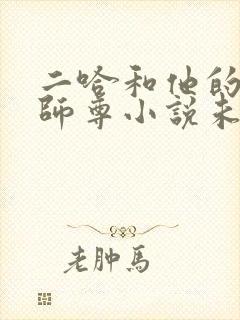 二哈和他的
師尊小說未
老肿馬